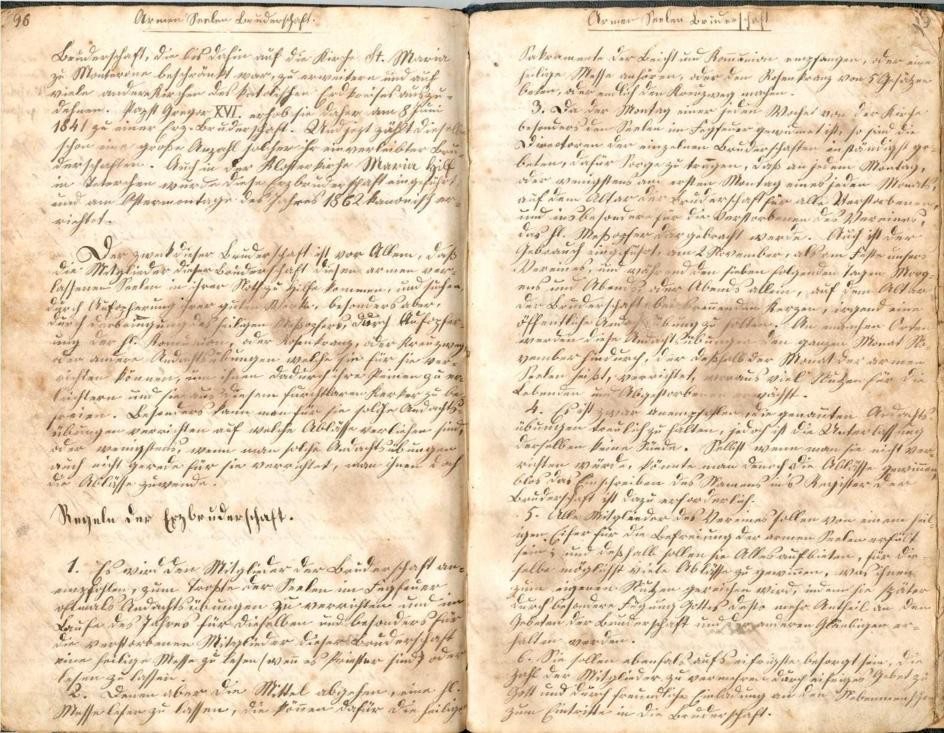 96
Armen Seelen Bruderschaft.
Bruderschaft, die bis dahin auf die Kirche St. Maria
zu Monterone beschränkt war, zu erweitern und auf
viele andere Kirchen des katolischen Erdkreises auszu-
dehnen. Papst Gregor XVI. erhob sie daher am 8 Juni
1841 zu einer Erz-Bruderschaft. Und jezt zählt dieselbe
schon eine große Anzahl solcher ihr einverleibter Bru-
derschaften. Auch in der Klosterkirche Maria Hilf
in wurde diese Erzbruderschaft eingeführt,
und am Ostermontage des Jahres 1862 kanonisch er-
richtet.
Der Zweck dieser Bruderschaft ist vor Allem, daß
die Mitglieder dieser Bruderschaft diesen armen ver-
lassenen Seelen in ihrer Noth zu Hilfe kommen, und suchen
durch Aufopferung ihrer guten Werke, besonders aber,
durch Darbringung des heiligen Meßopfers, durch Aufopfer-
ung der hl. Komunion, oder Rosenkranz, oder Kreuzweg
oder andere Andachtsübungen welche sie für sie ver-
richten können, um ihnen dadurch ihre Peinen zu er-
leichtern und sie aus diesem furchtbaren Kerker zu be-
freien. Besonders kann man für sie solche Andachts-
übungen verrichten auf welche Ablässe verliehen sind,
oder wenigstens, wenn man solche Andachtsübungen
auch nicht gerade für sie verrichtet, man ihnen doch
die Ablässe zuwende.
Regeln der Erzbruderschaft.
1. Es wird den Mitglieder der Bruderschaft an-
empfohlen, zum Troste der Seelen im Fegfeuer
oftmals Andachtsübungen zu verrichten und im
Laufe des Jahres für dieselben und besonders für
die verstorbenen Mitglieder dieser Bruderschaft
eine heilige Messe zu lesen (wen es Priester sind) oder
lesen zu lassen.
2. Denen aber die Mittel abgehen, eine hl.
Messe lesen zu lassen, die können dafür die heiligen
Armen Seelen Bruderschaft
Sakramente der Beicht und Komunion empfangen, oder eine
heilige Messe anhören, oder den Rosenkranz von 5 Gesätzen
beten, oder endlich den Kreuzweg machen.
3. Da der Montag einer jeden Woche von der Kirche
besonders den Seelen im Fegfeuer gewidmet ist, so sind die
Directoren der einzelnen Bruderschaften inständigst ge-
beten, dafür Sorge zu tragen, daß an jedem Montag,
oder wenigstens am ersten Montag eines jeden Monats,
auf dem Altar der Bruderschaft für alle Verstorbenen,
und insbesondere für die Verstorbenen des Vereines,
das hl. Meßopfer dargebracht werde. Auch ist der
Gebrauch eingeführt, am 2 November, als am Feste unsers
Vereines, und während den sieben folgenden Tagen Morg-
ens und Abends oder Abends allein, auf dem Altar
der Bruderschaft, bei brennenden Kerzen, irgend eine
öffentliche Andachtsübung zu halten. An manchen Orten
werden diese Andachtsübungen den ganzen Monat No-
vember hindurch, der deßhalb der Monat der armen
Seelen heißt, verrichtet, woraus viel Nutzen für die
Lebenden und Abgestorbenen erwächst.
4. Es ist zwar anempfohlen, die genanten Andachts-
übungen treulich zu halten, jedoch ist die Unterlassung
derselben keine Sünde. Selbst wenn man sie nicht ver-
richten würde, könnte man dennoch die Ablässe gewinnen,
blos das Einschreiben des Namens ins Register der
Bruderschaft ist dazu erforderlich.
5. Alle Mitglieder des Vereines sollen von einem heil-
igen Eifer für die Befreiung der armen Seelen erfüllt
sein; und deßhalb sollen sie Alles aufbieten, für die-
selbe möglichst viele Ablässe zu gewinnen, was ihnen
zum eigenen Nutzen gereichen wird, indem sie später
durch besondere Fügung Gottes desto mehr Antheil an den
Gebeten der Bruderschaft und der anderen Gläubigen er-
halten werden.
6. Sie sollen ebenfals aufs eifrigste besorgt sein, die
Zahl der Mitglieder zu vermehren durch eifriges Gebet zu
Gott und durch freundliche Einladung an den Nebenmenschen
zum Eintritte in die Bruderschaft.